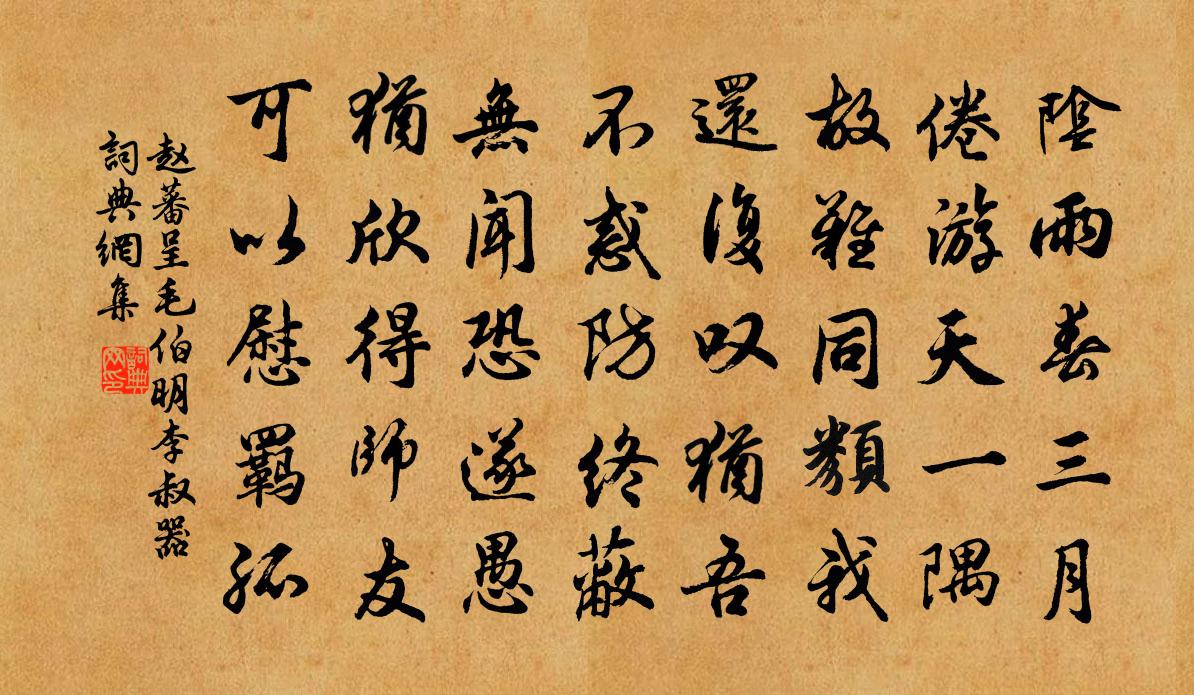 陰雨春三月
倦游天一隅
故難同類我
還復叹猶吾
不惑防終蔽
無聞恐遂愚
猶欣得師友
可以慰羁孤
赵蕃呈毛伯明李叔器
詞典網集
詞典网印